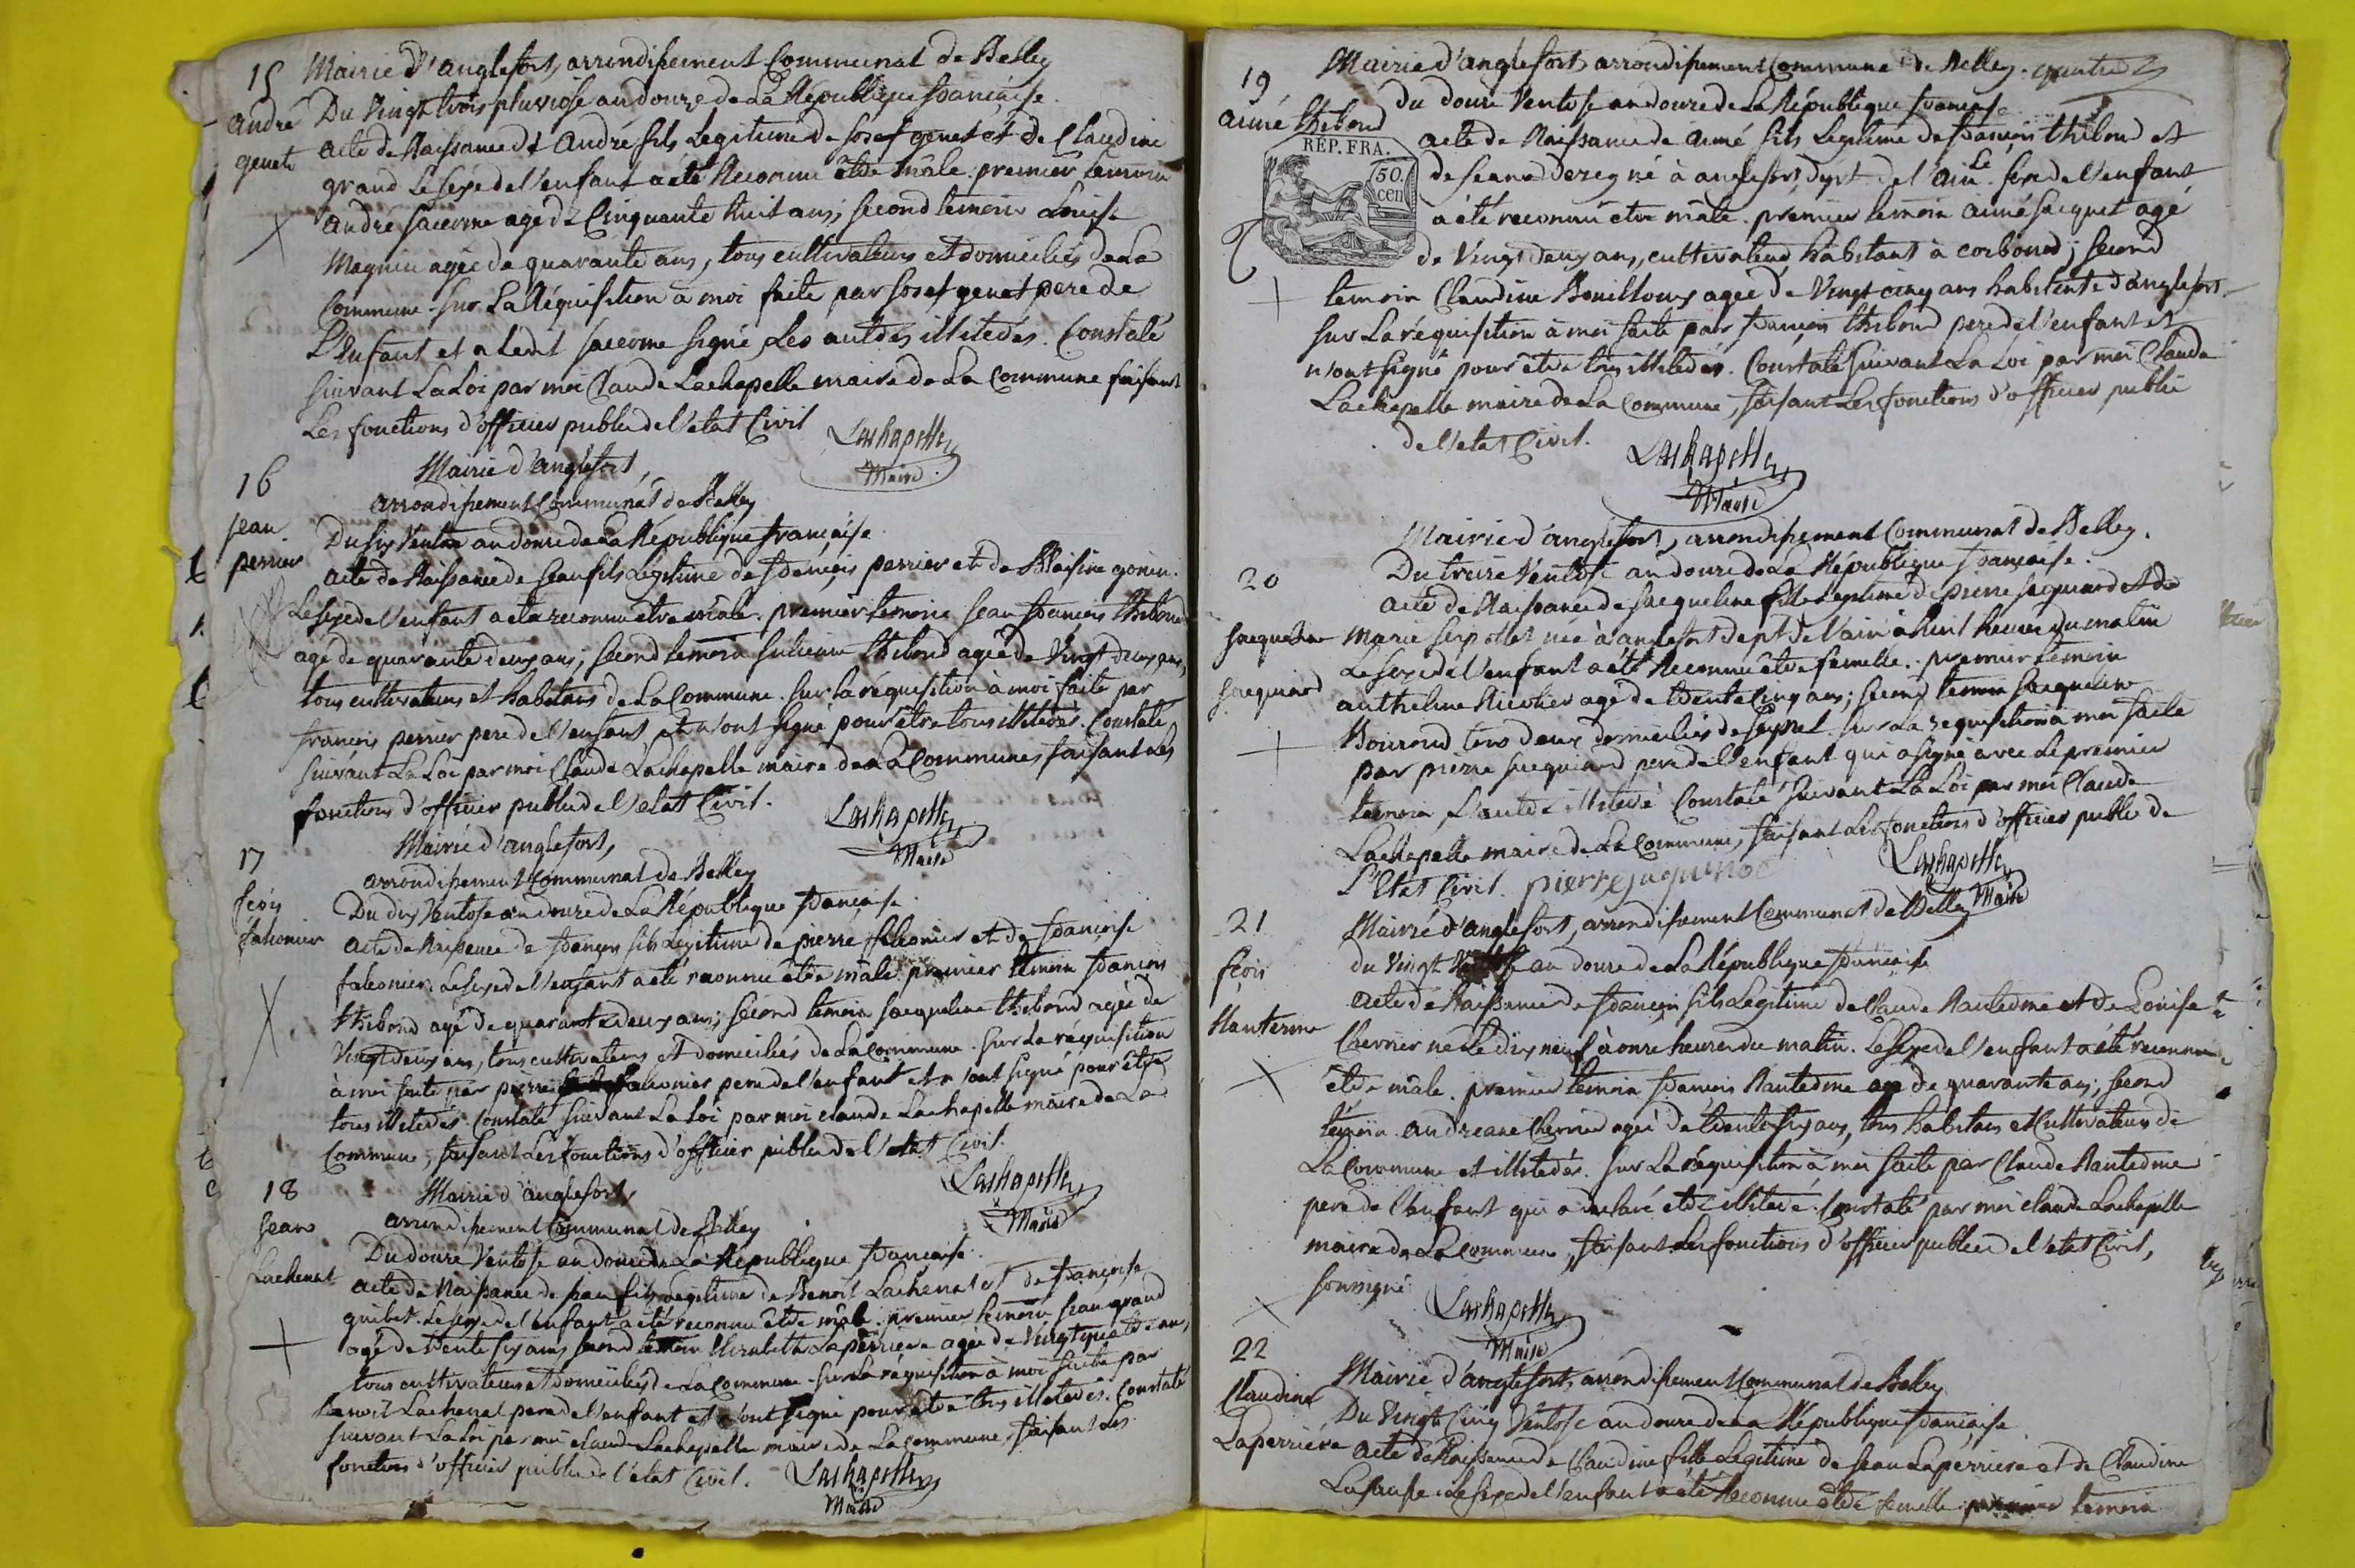 15
André
genet
Mairie d'anglefort, arrondissement Communal de Belley
Du Vingt trois pluviose an douze de La République française.
acte de Naissance d'André fils Legitime de Josef genet et de Claudine
grand Le sexe de l'enfant a été Reconnu être mâle. premier temoin
André Jacerme agé de Cinquante huit ans; second temoin Louise
Magnin agée de quarante ans, tous cultivateurs et domiciliés de La
Commune sur La Réquisition à moi faite par Josef genet pere de
L'Enfant et a Ledit Jacerme signé Les autres illiterés. Constaté
suivant La Loi par moi Claude Lachapelle maire de La Commune faisant
Les fonctions d'officier public de l'etat Civil
Lachapelle
Maire
16
jean
perrier
Mairie d'anglefort,
arrondissement Communal de Belley
Du six Ventose an douze de La République française
acte de Naissance de Jean fils Legitime de françois perrier et de Blaisine gonin.
Le sexe de l'enfant a eté reconnu etre mâle. premier temoin Jean françois thiboud
agé de quarante deux ans; second temoin Julienne thiboud agée de Vingt deux ans,
tous cultivateurs et habitans de La Commune. sur la réquisition à moi faite par
françois perrier pere de l'enfant et n'ont signé pour être tous illiterés. Constaté
suivant La Loi par moi Claude Lachapelle maire de La Commune, faisant les
fonctions d'officier public de l'etat Civil.
Lachapelle
Maire
17
fcois
falconier
Mairie d'anglefort,
arrondissement Communal de Belley
Du dix Ventose an douze de La République française.
acte de Naissance de françois fils Legitime de pierre falconier et de françoise
falconier. Le sexe de l'enfant a eté reconnu être mâle. premier temoin françois
thiboud agé de quarante deux ans; second temoin Jacqueline thiboud agée de
Vingt deux ans, tous cultivateurs et domiciliés de La Commune. sur La réquisition
à moi faite par pierre falconier pere de l'enfant et n'ont signé pour être
tous illiterés. Constaté suivant La Loi par moi Claude Lachapelle maire de La
Commune, faisant Les fonctions d'officier public de l'etat Civil.
Lachapelle
Maire
18
Jean
Lachenal
Mairie d'anglefort,
arrondissement Communal de Belley
Du douze Ventose an douze de La République française.
acte de Naissance de jean fils Legitime de Benoit Lachenal et de françoise
quibet. Le sexe de l'enfant a eté reconnu être mâle. premier temoin Jean grand
agé de trente six ans, second temoin Elizabeth Laperrière agée de Vingt quatre ans,
tous cultivateurs et domiciliés de La Commune. sur La réquisition à moi faite par
Benoit Lachenal pere de l'enfant et n'ont signé pour etre tous illiterés. Constaté
suivant La Loi par moi Claude Lachapelle maire de La Commune, faisant Les
fonctions d'officier public de l'etat Civil.
Lachapelle
Maire
19
aimé thiboud
REP. FRA.
50.
cen
Mairie d'anglefort, arrondissement Commune de Belley. quatre
du douze Ventose an douze de La République française
acte de Naissance de aimé fils Legitime de françois thiboud et
de Jeane à anglefort dpt. de l'ain. Le sexe de l'enfant
a été reconnu etre mâle. premier temoin aimé Jacquet agé
de Vingt deux ans, cultivateur habitant à corbonod; second
temoin Claudine Bouilloux agée de Vingt cinq ans habitante d'anglefort.
sur La réquisition à moi faite par françois thiboud pere de l'enfant et
n'ont signé pour être tous illiterés. Constaté suivant La Loi par moi Claude
Lachapelle maire de La Commune, faisant Les fonctions d'officier public
de l'etat Civil.
Lachapelle
Maire
20
Jacqueline
Jacquard
Mairie d'anglefort, arrondissement Communal de Belley.
Du treize Ventose an douze de La République française.
acte de Naissance de Jacqueline fille Legitime de pierre Jacquard et de
Marie serpollet née à anglefort dept. de l'ain à huit heures du matin
Le sexe de l'enfant a été Reconnu être femelle. premier temoin
anthelme Nicolier agé de trente cinq ans; second temoin Jacqueline
Bouroud tous deux domiciliés de seyssel. sur La requisition à moi faite
par pierre Jacquard pere de l'enfant qui a signé avec Le premier
temoin L'autre illiteré Constaté suivant La Loi par moi Claude
Lachapelle maire de La Commune, faisant Les fonctions d'officier public de
L'Etat Civil. pierre
Lachapelle
Maire
21
fcois
Nanterme
Mairie d'anglefort, arrondissement Communal de Belley
du Vingt Ventose an douze de La République française
acte de Naissance de françois fils Legitime de Claude Nanterme et de Louise
Cherrier né Le dix neuf à onze heures du matin. Le sexe de l'enfant a été reconnu
être mâle. premier temoin françois Nanterme agé de quarante ans; second
temoin andreane Cherrier agée de trente six ans, tous habitans et Cultivateurs de
La Commune et illiterés. sur La réquisition à moi faite par Claude Nanterme
pere de l'enfant qui a declaré etre illiteré. Constaté par moi claude Lachapelle
maire de La Commune, faisant Les fonctions d'officier public de l'etat Civil,
soussigné
Lachapelle
Maire
22
Claudine
Laperrière
Mairie d'anglefort, arrondissement Communal de Belley
Du Vingt Cinq Ventose an douze de La République française.
acte de Naissance de Claudine fille Legitime de Jean Laperriere et de Claudine
Le sexe de l'enfant a eté Reconnu être femelle premier temoin